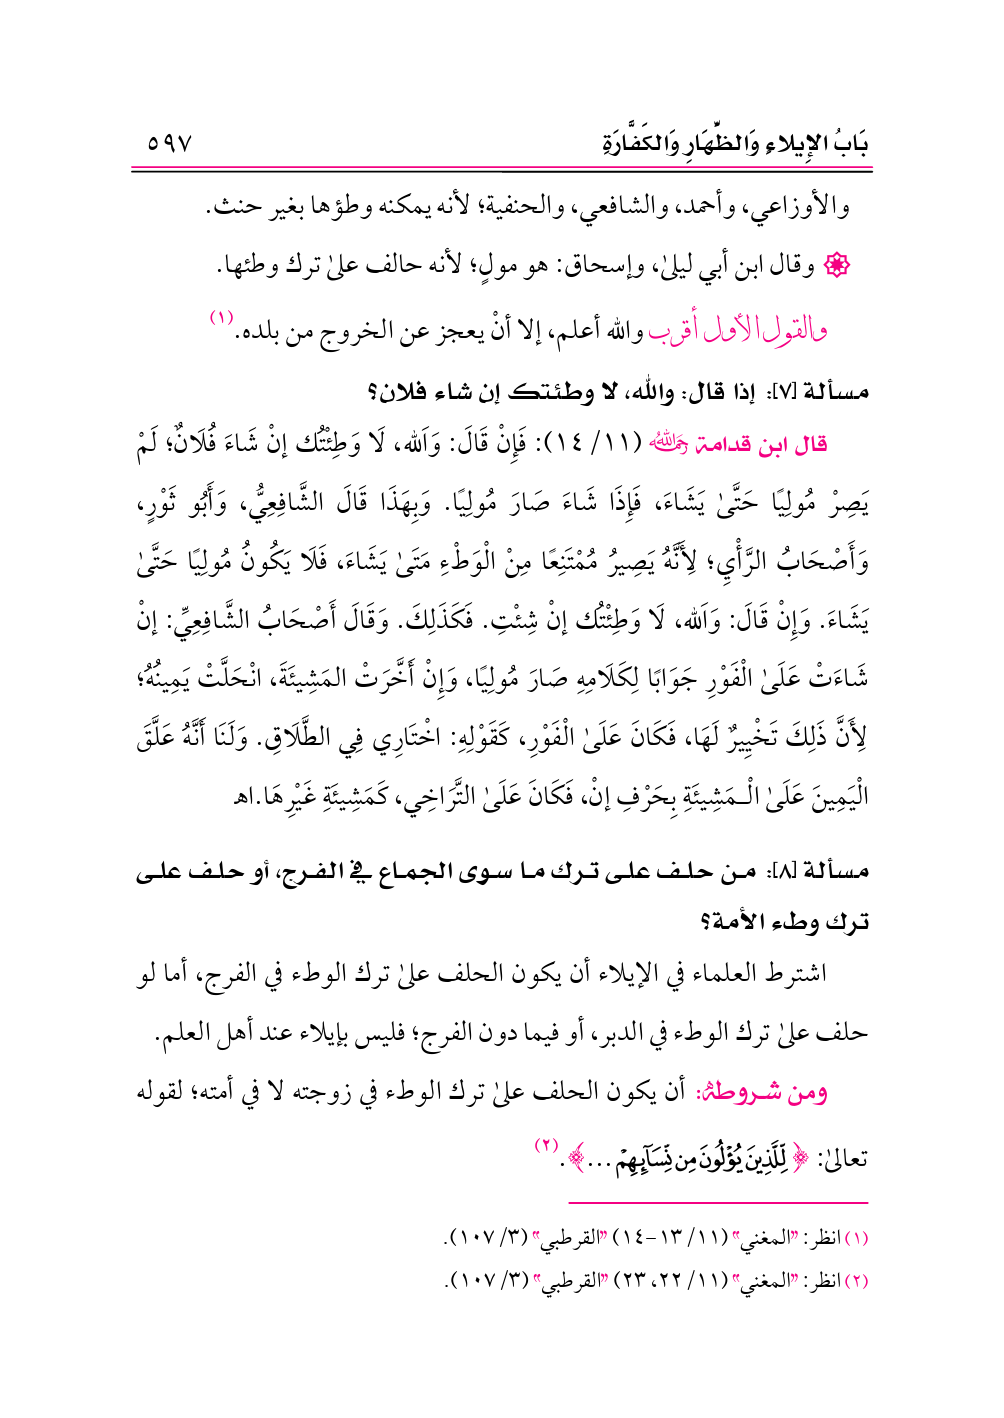 بَابُ الإِيلاءِ وَالظِّهَارِ وَالكَفَّارَةِ ٥٩٧
والأوزاعي، وأحمد، والشافعي، والحنفية؛ لأنه يمكنه وطؤها بغير حنث.
وقال ابن أبي ليلىٰ، وإسحاق: هو مولٍ؛ لأنه حالف علىٰ ترك وطئها.
والقول الأول أقرب والله أعلم، إلا أنْ يعجز عن الخروج من بلده.(١)
مسألة [٧]: إذا قال: والله، لا وطئتك إن شاء فلان؟
قال ابن قدامة رَحِمَهُ اللهُ (١١/ ١٤): فَإِنْ قَالَ: وَاَلله، لَا وَطِئْتُك إنْ شَاءَ فُلَانٌ؛ لَمْ
يَصِرْ مُولِيًا حَتَّىٰ يَشَاءَ، فَإِذَا شَاءَ صَارَ مُولِيًا. وَبِهَذَا قَالَ الشَّافِعِيُّ، وَأَبُو ثَوْرٍ،
وَأَصْحَابُ الرَّأْيِ؛ لِأَنَّهُ يَصِيرُ مُمْتَنِعًا مِنْ الْوَطْءِ مَتَىٰ يَشَاءَ، فَلَا يَكُونُ مُولِيًا حَتَّىٰ
يَشَاءَ. وَإِنْ قَالَ: وَاَلله، لَا وَطِئْتُك إنْ شِئْتِ. فَكَذَلِكَ. وَقَالَ أَصْحَابُ الشَّافِعِيِّ: إنْ
شَاءَتْ عَلَىٰ الْفَوْرِ جَوَابًا لِكَلَامِهِ صَارَ مُولِيًا، وَإِنْ أَخَّرَتْ المَشِيئَةَ، انْحَلَّتْ يَمِينُهُ؛
لِأَنَّ ذَلِكَ تَخْيِيرٌ لَهَا، فَكَانَ عَلَىٰ الْفَوْرِ، كَقَوْلِهِ: اخْتَارِي فِي الطَّلَاقِ. وَلَنَا أَنَّهُ عَلَّقَ
الْيَمِينَ عَلَىٰ الْـمَشِيئَةِ بِحَرْفِ إنْ، فَكَانَ عَلَىٰ التَّرَاخِي، كَمَشِيئَةِ غَيْرِهَا.اهـ
مسألة [٨]: مـن حلـف علـى تـرك مـا سـوى الجمـاع في الفـرج، أو حلـف علـى
ترك وطء الأمة؟
اشترط العلماء في الإيلاء أن يكون الحلف علىٰ ترك الوطء في الفرج، أما لو
حلف علىٰ ترك الوطء في الدبر، أو فيما دون الفرج؛ فليس بإيلاء عند أهل العلم.
ومن شـروطه: أن يكون الحلف علىٰ ترك الوطء في زوجته لا في أمته؛ لقوله
تعالىٰ: ﴿لِّلَّذِينَ يُؤْلُونَ مِن نِّسَآئِهِمْ ...﴾.(٢)
(١) انظر: "المغني" (١١/ ١٣-١٤) "القرطبي" (٣/ ١٠٧).
(٢) انظر: "المغني" (١١/ ٢٢، ٢٣) "القرطبي" (٣/ ١٠٧).